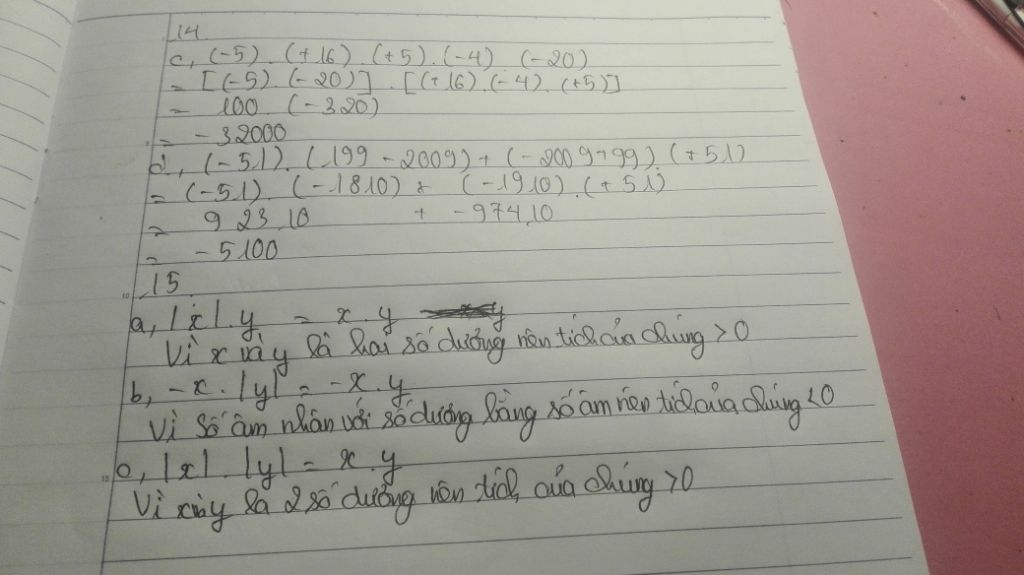 14
c, (-5). (+16). (+5). (-4) (-20)
= [(-5). (-20)]. [(+16). (-4). (+5)]
= 100. (-320)
= -32000
d, (-51). (199 - 2009) + (-2009+99). (+51)
= (-51). (-1810) + (-1910). (+51)
= 92310 + -97410
= -5100
15
a, |x|. y = x. y
Vì x và y là hai số dương nên tích của chúng >0
b, -x. |y| = -x. y
Vì số âm nhân với số dương bằng số âm nên tích của chúng <0
c, |x|. |y| = x. y
Vì x và y là 2 số dương nên tích của chúng >0